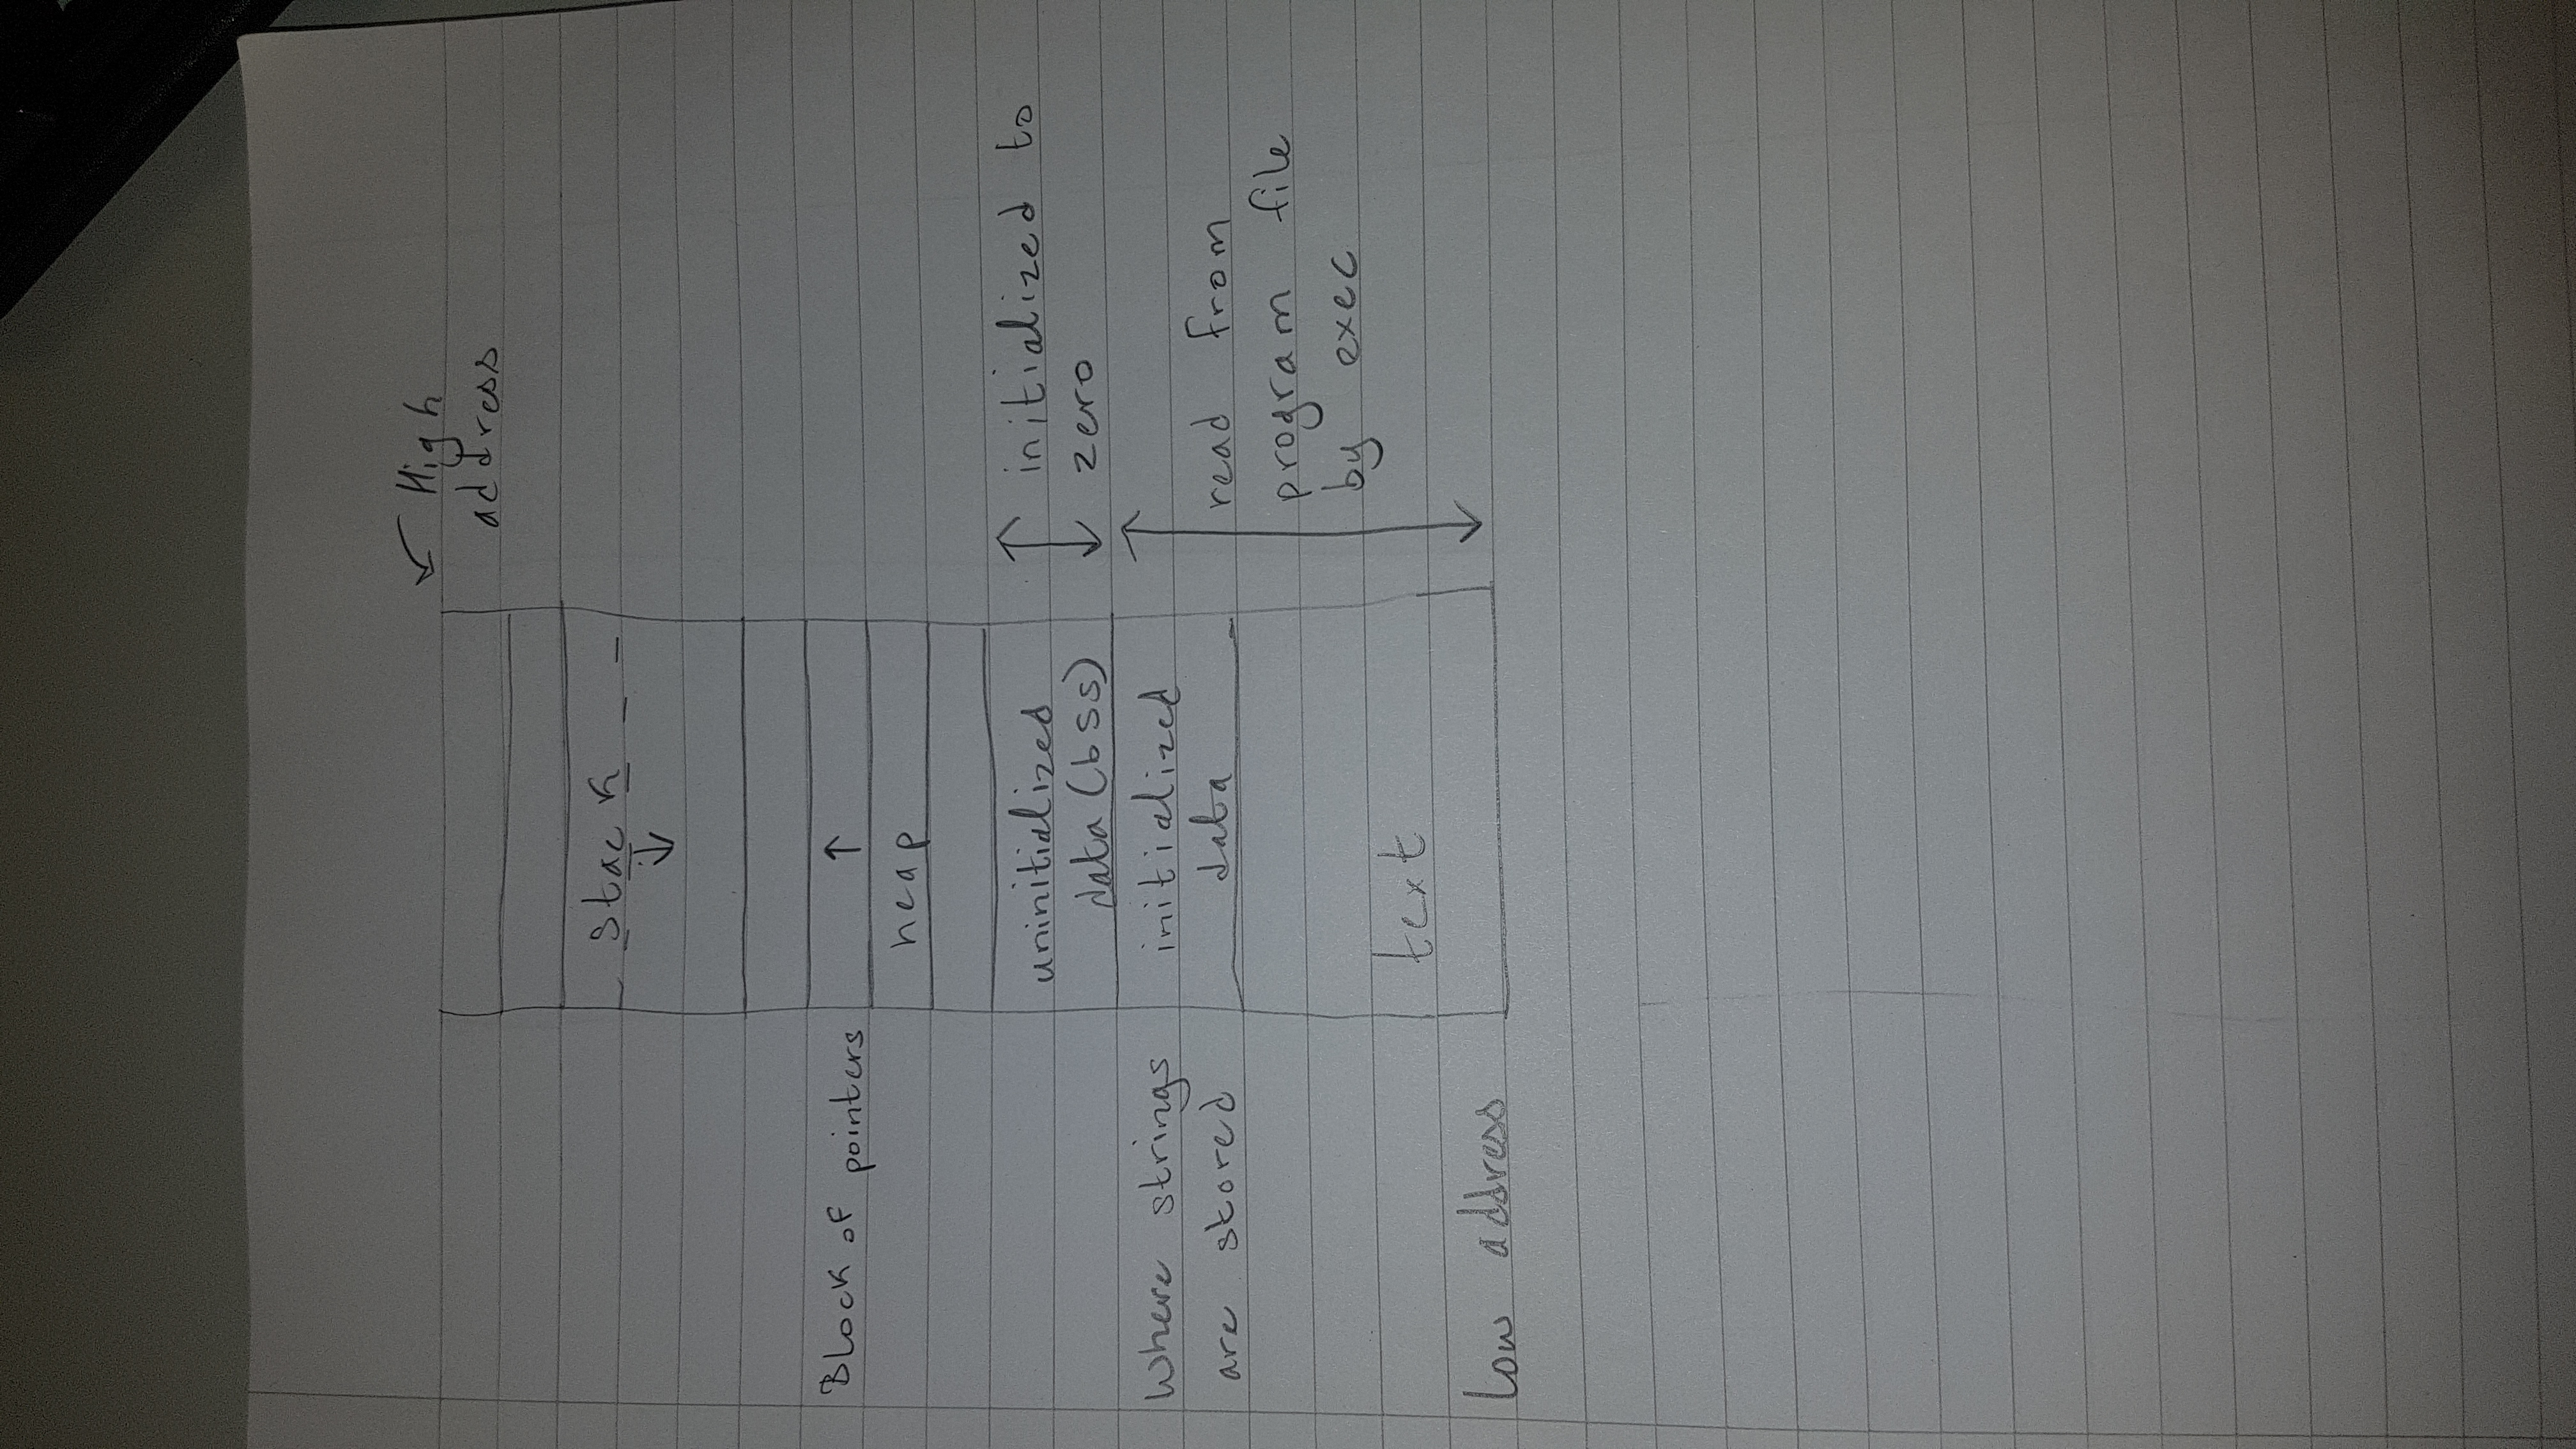 High
address
stack
Block of pointers
heap
uninitialized
data (bss)
initialized to
zero
Where strings
are stored
initialized
data
read from
program file
by exec
text
Low address